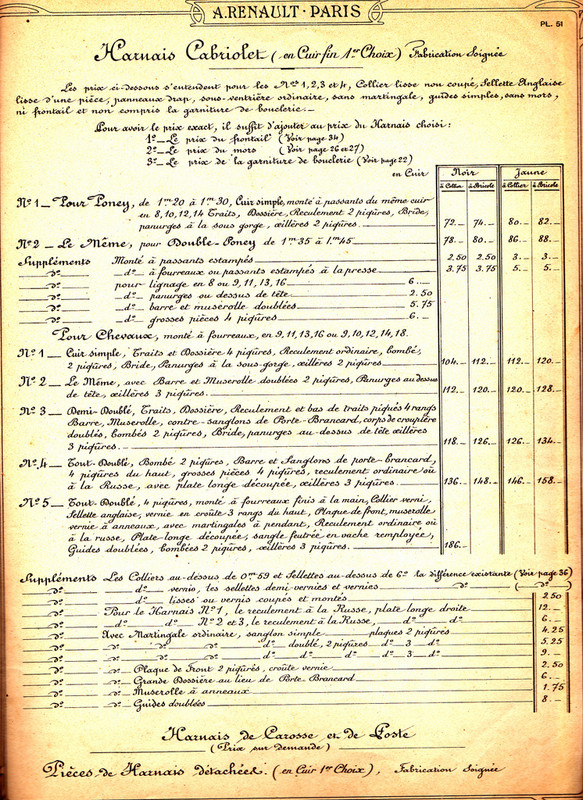 A. RENAULT - PARIS
PL. 51
Harnais Cabriolet (en Cuir fin 1er Choix) Fabrication Soignée
Les prix ci-dessous s'entendent pour les Nos 1, 2, 3 et 4, Collier lisse non coupé, Sellette Anglaise
lisse d'une pièce, panneaux drap, sous-ventrière ordinaire, sans martingale, guides simples, sans mors,
ni frontail et non compris la garniture de bouclerie. —
Pour avoir le prix exact, il suffit d'ajouter au prix du Harnais choisi:
1o — Le prix du frontail (Voir page 34)
2o — Le prix du mors (Voir pages 26 et 27)
3o — Le prix de la garniture de bouclerie (Voir page 22)
en Cuir Noir Jaune
à Collier à Bricole à Collier à Bricole
No 1 — Pour Poney, de 1m20 à 1m30, Cuir simple, monté à passants du même cuir
en 8, 10, 12, 14 Traits, Dossière, Reculement 2 piqûres, Bride,
panurges à la sous gorge, œillères 2 piqûres 72. — 74. — 80. — 82. —
No 2 — Le Même, pour Double-Poney de 1m35 à 1m45 78. — 80. — 86. — 88. —
Suppléments Monté à passants estampés 2.50 2.50 3. — 3. —
do do à fourreaux ou passants estampés à la presse 3.75 3.75 5. — 5. —
do pour lignage en 8 ou 9, 11, 13, 16 6. —
do do panurges au dessus de tête 2.50
do do barre et muserolle doublées 5.75
do do grosses pièces 4 piqûres 6. —
Pour Chevaux, monté à fourreaux, en 9, 11, 13, 16 ou 9, 10, 12, 14, 18.
No 1 — Cuir simple, Traits et Dossière 4 piqûres, Reculement ordinaire, bombé,
2 piqûres, Bride, Panurges à la sous-gorge, œillères 2 piqûres 104. — 112. — 112. — 120. —
No 2 — Le Même, avec Barre et Muserolle doublées 2 piqûres, Panurges au dessus
de tête, œillères 3 piqûres. 112. — 120. — 120. — 128. —
No 3 — Demi-Doublé, Traits, Dossière, Reculement et bas de traits piqués 4 rangs
Barre, Muserolle, contre-sanglons de Porte-Brancard, corps de croupière
doublés, bombés 2 piqûres, Bride, panurges au-dessus de tête œillères
3 piqûres 118. — 126. — 126. — 134. —
No 4 — Tout-Doublé, Bombé 2 piqûres, Barre et Sanglons de porte-brancard,
4 piqûres du haut, grosses pièces 4 piqûres, reculement ordinaire ou
à la Russe, avec plate longe découpée, œillères 3 piqûres 136. — 148. — 146. — 158. —
No 5 — Tout-Doublé, 4 piqûres, monté à fourreaux finis à la main, Collier verni,
Sellette anglaise, vernie en croûte 3 rangs du haut, Plaque de front, muserolle
vernie à anneaux, avec martingales à pendant, Reculement ordinaire où
à la russe, Plate-longe découpée, sangle feutrée en vache remployée,
Guides doublées, bombées 2 piqûres, œillères 3 piqûres. 186. —
Suppléments Les Colliers au-dessus de 0m59 et Sellettes au-dessus de 6o la différence existante (Voir page 36)
do do vernis, les sellettes demi vernies et vernies do (do)
do do lisses ou vernis coupés et montés 2.50
do Pour le Harnais No 1, le reculement à la Russe, plate longe droite 12. —
do do do Nos 2 et 3, le reculement à la Russe, do do 6. —
do Avec Martingale ordinaire, sanglon simple plaques 2 piqûres 4.25
do do do do do doublé, 2 piqûres do 3 do 5.25
do do do do do do do 3 do 9. —
do Plaque de Front 2 piqûres, croûte vernie 2.50
do Grande Dossière au lieu de Porte-Brancard 6. —
do Muserolle à anneaux 1.75
do Guides doublées 8. —
Harnais de Carosse et de Poste
(Prix sur demande)
Pièces de Harnais détachées. (en Cuir 1er Choix), Fabrication Soignée